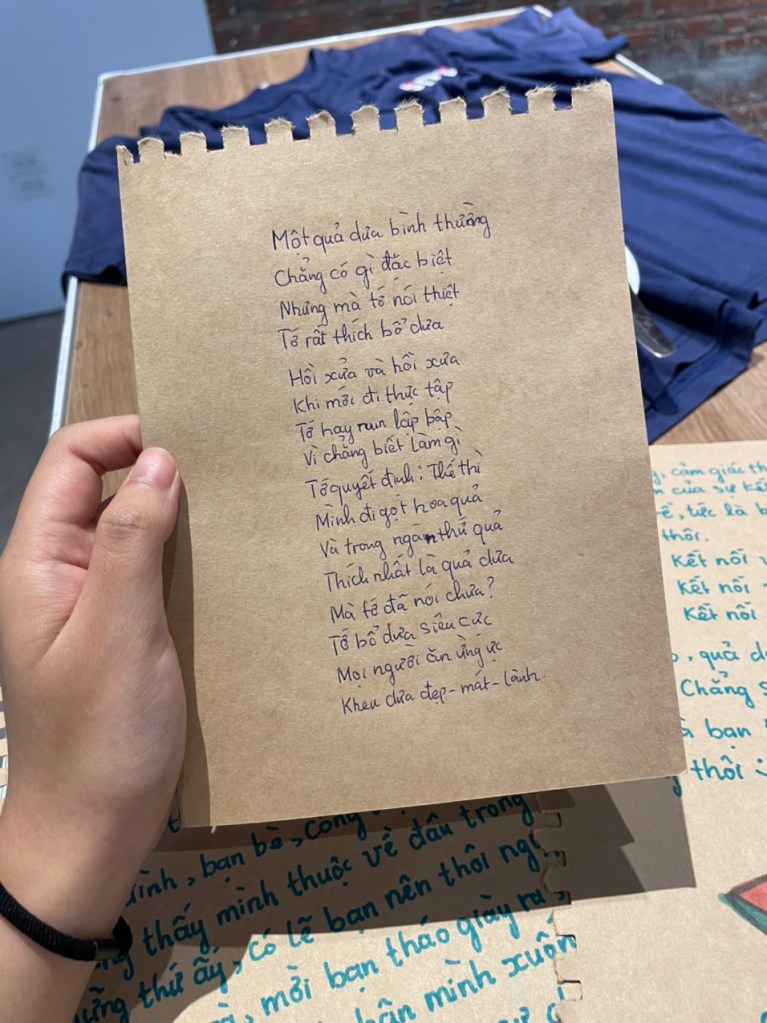 Một quả dưa bình thường
Chẳng có gì đặc biệt
Nhưng mà tớ nói thiệt
Tớ rất thích bổ dưa
Hồi xửa và hồi xưa
Khi mới đi thực tập
Tớ hay run lập bập
Vì chẳng biết làm gì
Tớ quyết định: Thế thì
Mình đi gọt hoa quả
Và trong ngàn thứ quả
Thích nhất là quả dưa
Mà tớ đã nói chưa?
Tớ bổ dưa siêu cực
Mọi người ăn ừng ực
Khen dưa đẹp - mát - lành.
, cảm giác th
của sự kết
, tức là b
thôi.
Kết nối
Kết nối
Kết nối
, quả d
Chẳng s
bạn
thôi :
, bạn bè, công
thấy mình thuộc về đâu trong
thứ ấy, có lẽ bạn nên thôi ng
, mời bạn tháo giày ra,
mình xuốn